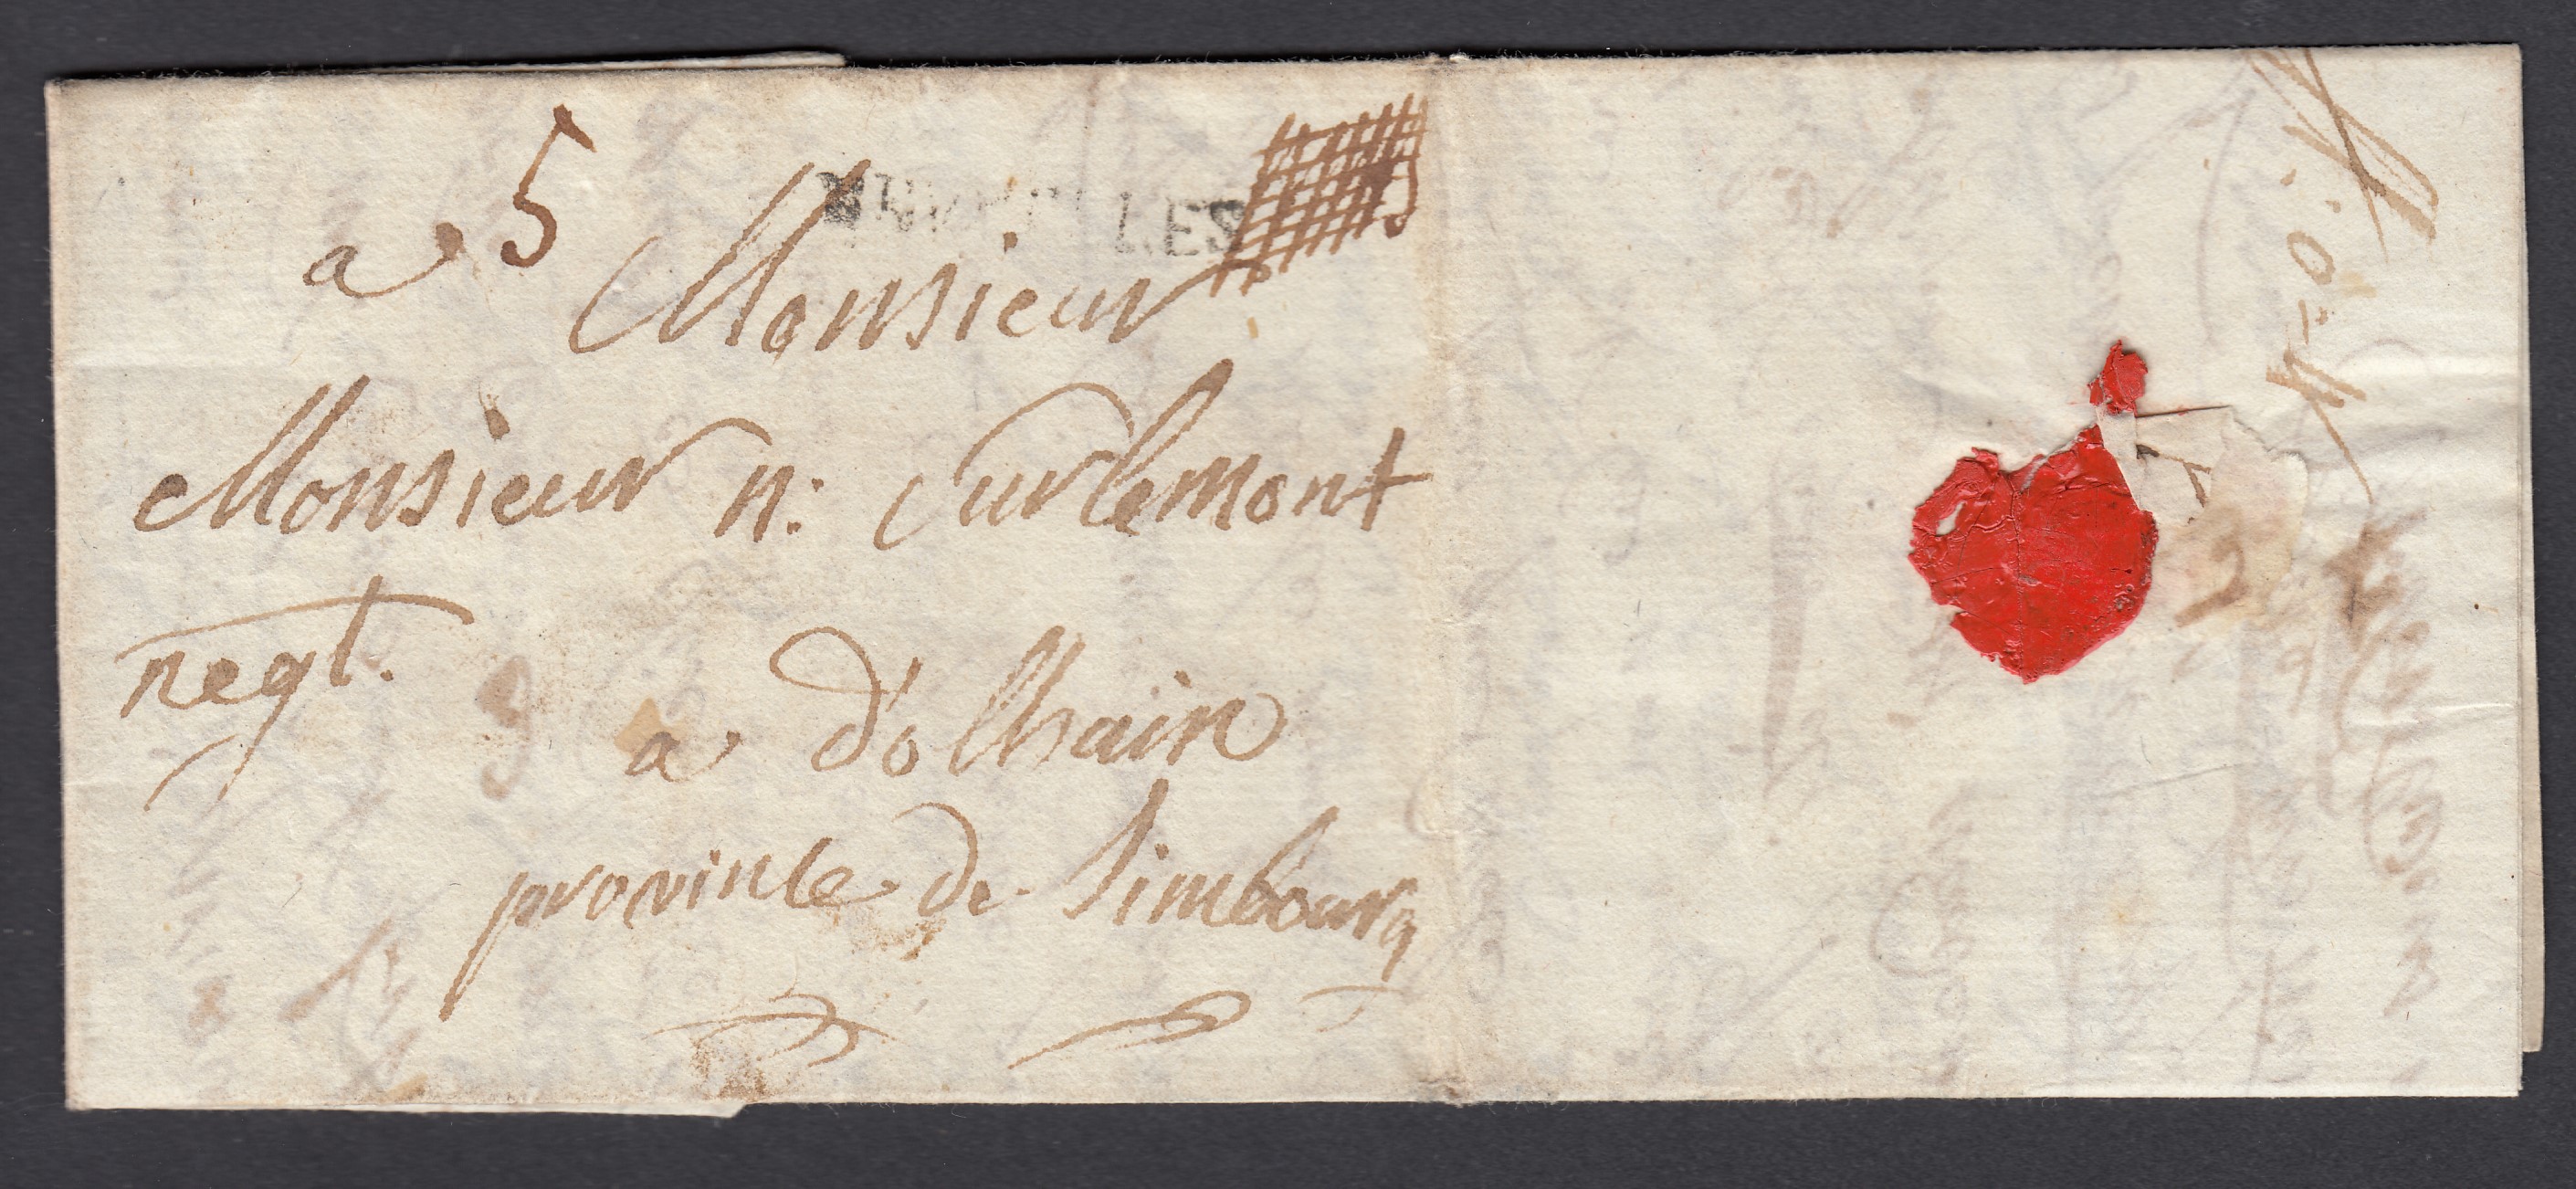 5
a Monsieur
LES
Monsieur n: Surlemont
negt.
a d'olhain
province de limbourg